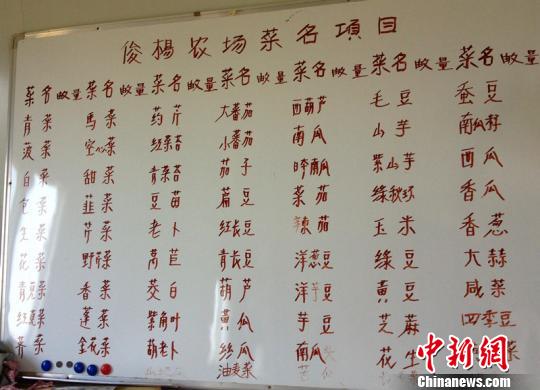 俊楊农场菜名項目
菜名 畝量 菜名 畝量 菜名 畝量 菜名 畝量 菜名 畝量 菜名 畝量 菜名 畝量
青菜 馬菜 药芹 大番茄 西葫芦 毛豆 蚕豆
菠菜 空心菜 红菜苔 小番茄 南瓜 山芋 南瓜籽
白菜 甜菜 青菜苔 茄子 紫山芋 西瓜
韮菜 豆苗 扁豆 菜茄 香瓜
生菜 芹菜 老卜 红长豆 辣茄 玉米 香葱
花菜 野芹菜 莴苣 青长豆 洋葱豆 绿豆 大蒜
青苋菜 香菜 茭白 葫芦 洋芋豆 黄豆 咸菜
红苋菜 蓬菜 紫角叶 黃瓜 芋豆 芝蔴 四季豆
荠菜 金花菜 胡老卜 丝瓜 南瓜 花生 菜
油麦菜
中新网
Chinanews.com
Chinanews.com